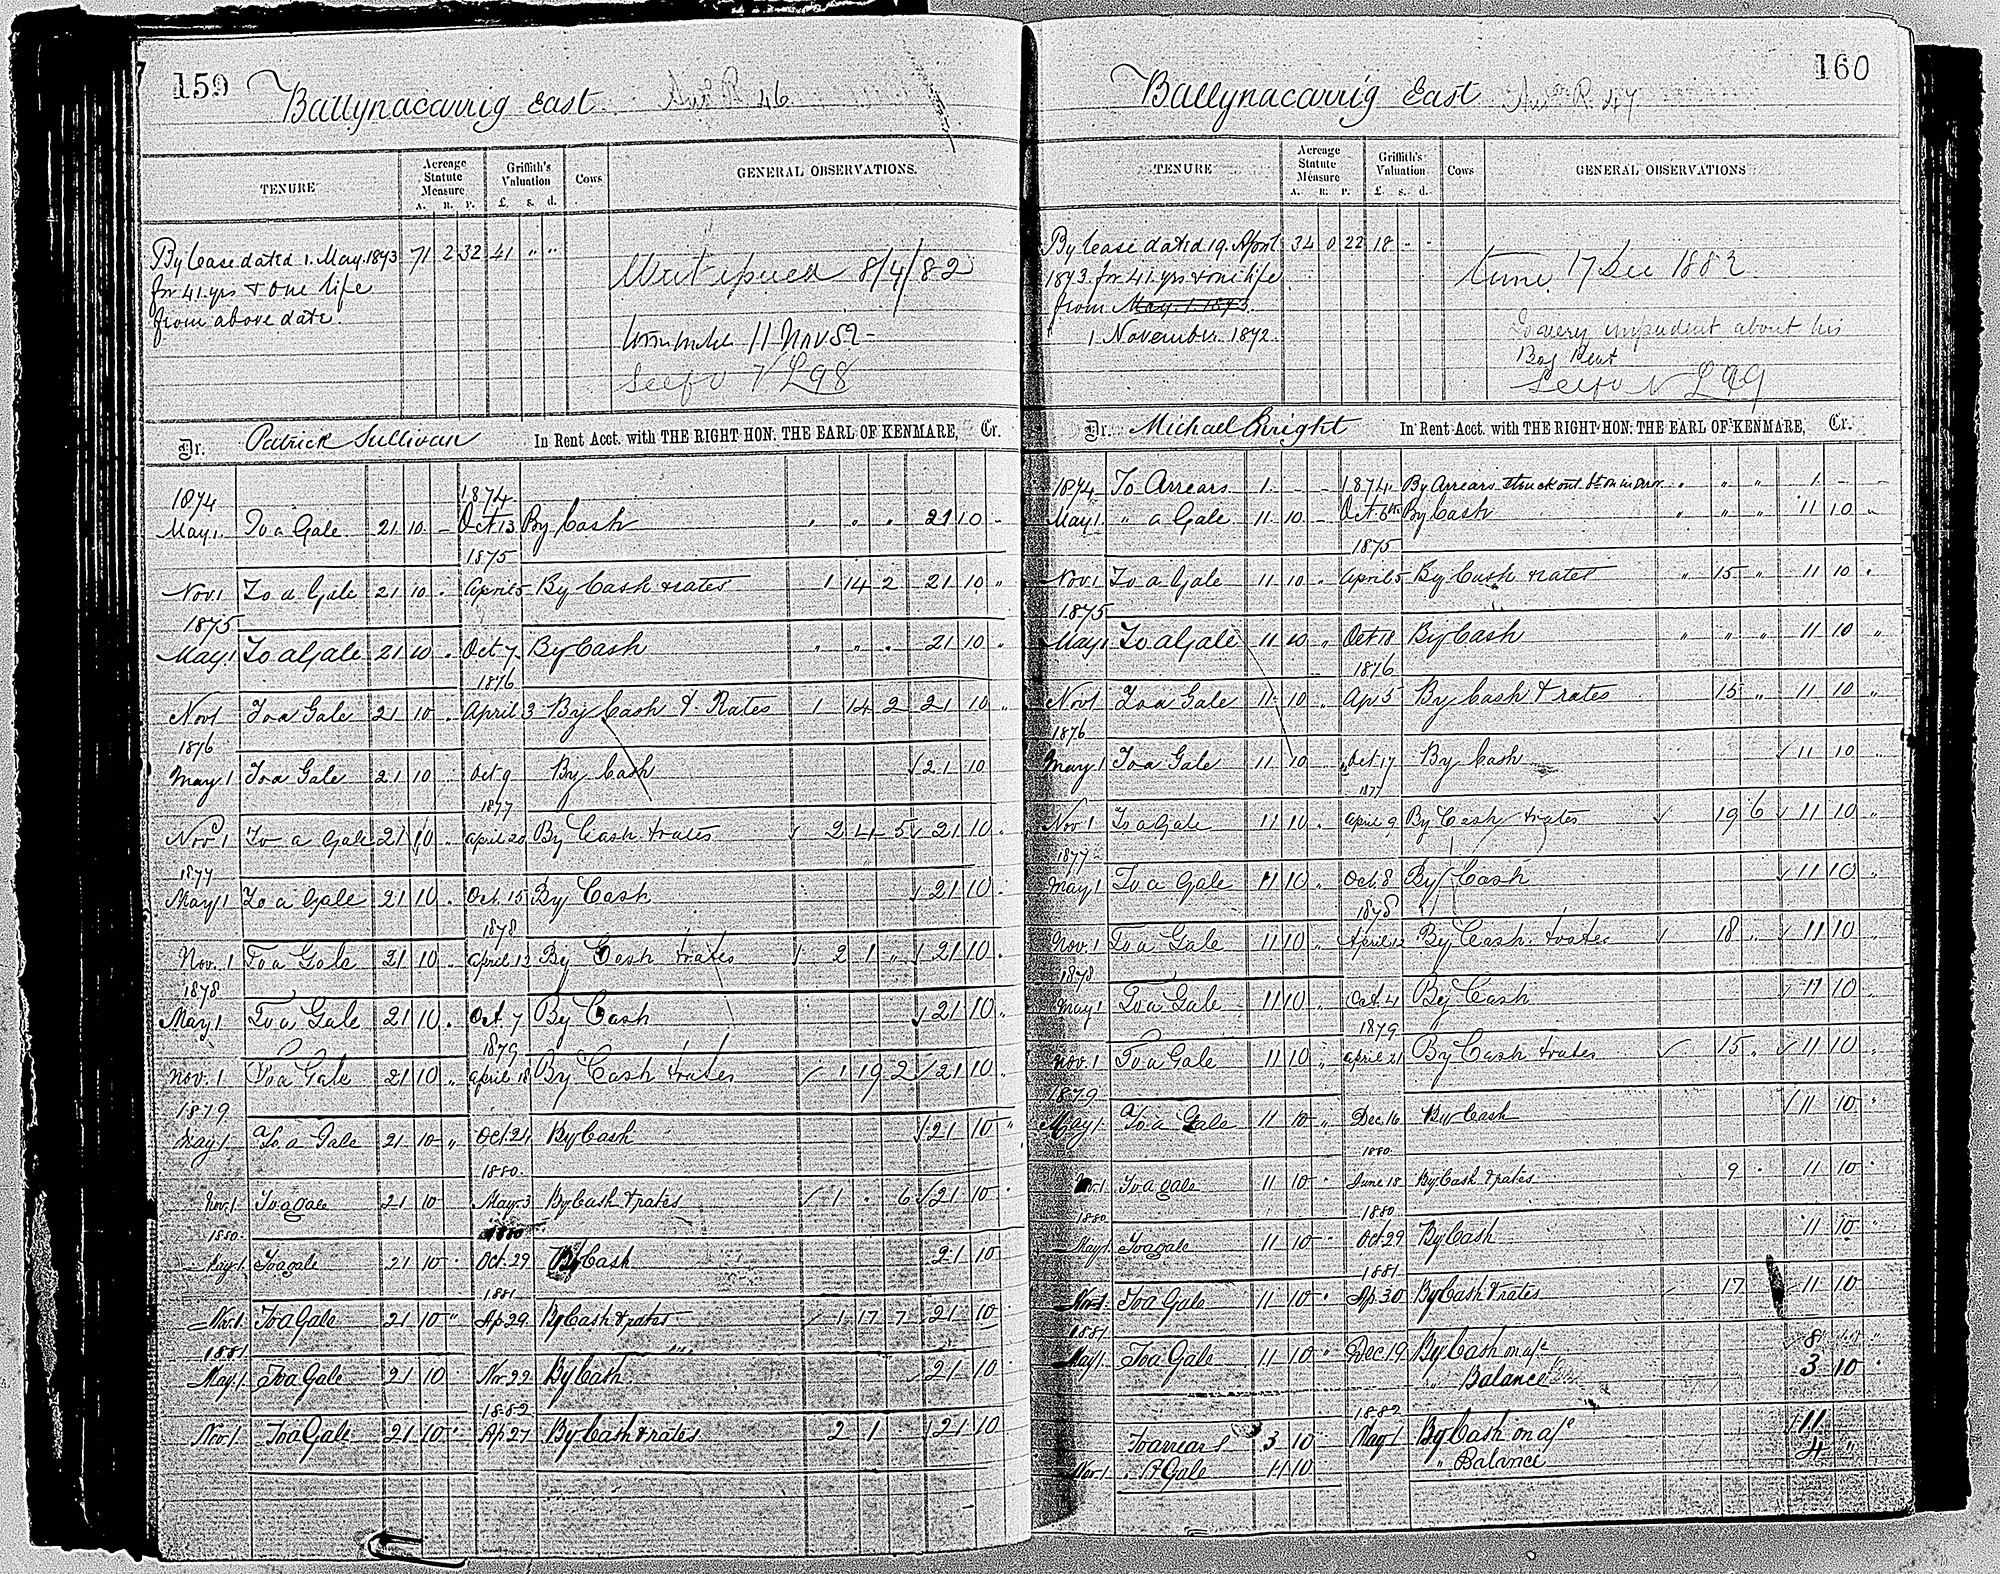 159
Ballynacarrig East R. 46
TENURE
Acreage Statute Measure
A. R. P.
Griffith's Valuation
£. s. d.
Cows
GENERAL OBSERVATIONS.
By lease dated 1. May. 1873 71 2 32 41 " "
for 41. yrs & one life
from above date.
Writ issued 8/4/82
11 Nov 82
L98
Dr. Patrick Sullivan In Rent Acct. with THE RIGHT HON: THE EARL OF KENMARE, Cr.
1874 1874
May 1. To a Gale 21 10 - Oct 13 By Cash " " " 21 10 "
1875
Nov 1 To a Gale 21 10 " April 5 By Cash & rates 1 14 2 21 10 "
1875
May 1 To a Gale 21 10 " Oct 7 By Cash " " " 21 10 "
1876
Nov 1 To a Gale 21 10 " April 3 By Cash & Rates 1 14 2 21 10 "
1876
May 1 To a Gale 21 10 Oct 9 By Cash 21 10
1877
Nov 1 To a Gale 21 10 " April 20 By Cash & rates 2 4 5 21 10 "
1877
May 1 To a Gale 21 10 " Oct. 15 By Cash 21 10 "
1878
Nov. 1 To a Gale 21 10 " April 12 By Cash & rates 2 1 " 21 10 "
1878
May 1 To a Gale 21 10 " Oct. 7 By Cash 21 10 "
1879
Nov. 1 To a Gale 21 10 " April 18 By Cash & rates 1 19 2 21 10 "
1879
May 1 To a Gale 21 10 " Oct. 24 By Cash 21 10 "
1880.
Nov. 1 To a gale 21 10 May. 3 By Cash & rates 1 " 6 21 10 "
1880. 1880
May 1. To a gale 21 10 " Oct. 29 By Cash 21 10
1881
Nov. 1 To a Gale 21 10 " Ap 29 By Cash & rates 1 17 7 21 10
1881
May. 1 To a Gale 21 10 " Nov. 22 By Cash 21 10 "
1882
Nov. 1 To a Gale 21 10 " Ap 27 By Cash & rates 2 1 21 10
160
Ballynacarrig East R. 47
TENURE
Acreage Statute Measure
A. R. P.
Griffith's Valuation
£. s. d.
Cows
GENERAL OBSERVATIONS
By lease dated 19. April 34 0 22 18 " "
1873. for 41. yrs & one life
from May. 1. 1873.
1 November. 1872.
time 17 Dec 1882
Is very impudent about his
Bog Rent
L99
Dr. Michael Enright In Rent Acct. with THE RIGHT HON: THE EARL OF KENMARE, Cr.
1874 To Arrears 1 - - 1874 By Arrears struck out " " " 1 - -
May 1. " a Gale 11 10 - Oct 6th By Cash " " " 11 10 "
1875
Nov 1 To a Gale 11 10 " April 5 By Cash & rates " 15 " 11 10 "
1875
May 1 To a Gale 11 10 " Oct 18 By Cash " " " 11 10 "
1876
Nov 1 To a Gale 11 10 " Ap 5 By Cash & rates 15 " 11 10 "
1876
May 1 To a Gale 11 10 " Oct 17 By Cash 11 10 "
1877
Nov. 1 To a Gale 11 10 " April 9 By Cash & rates 19 6 11 10 "
1877
May 1 To a Gale 11 10 " Oct 8 By Cash 11 10 "
1878
Nov. 1 To a Gale 11 10 " April 12 By Cash & rates 18 " 11 10 "
1878
May 1 To a Gale 11 10 " Oct. 4 By Cash 11 10 "
1879
Nov. 1 To a Gale 11 10 " April 21 By Cash & rates 15 " 11 10 "
1879
May 1. To a Gale 11 10 " Dec. 16 By Cash 11 10 "
1880
Nov. 1 To a gale 11 10 " June 18 By Cash & rates 9 " 11 10 "
1880 1880
May 1. To a gale 11 10 " Oct. 29 By Cash 11 10 "
1881
Nov. 1. To a Gale 11 10 " Ap. 30 By Cash & rates 17 11 10
1881
May 1. To a Gale 11 10 " Dec. 19 By Cash on a/c 8 " "
" Balance 3 10 "
1882
To arrears 3 10 May 1 By Cash on a/c 11
Nov. 1 " A Gale 11 10 " Balance 4 "